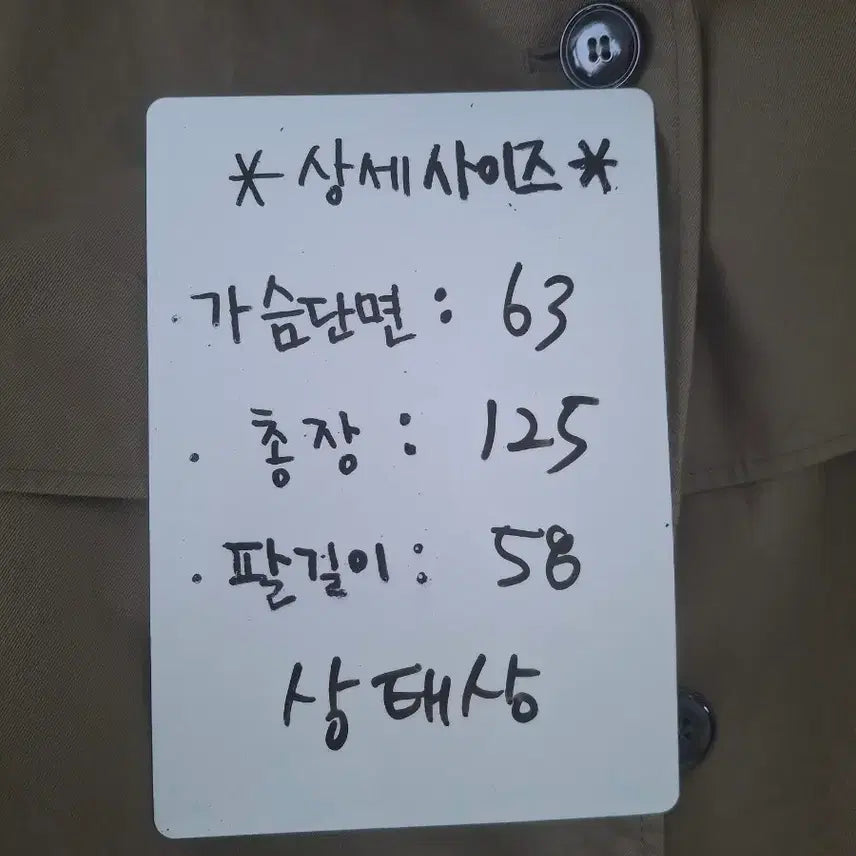 *상세사이즈*
· 가슴단면 : 63
· 총장 : 125
· 팔길이 : 58
상태상